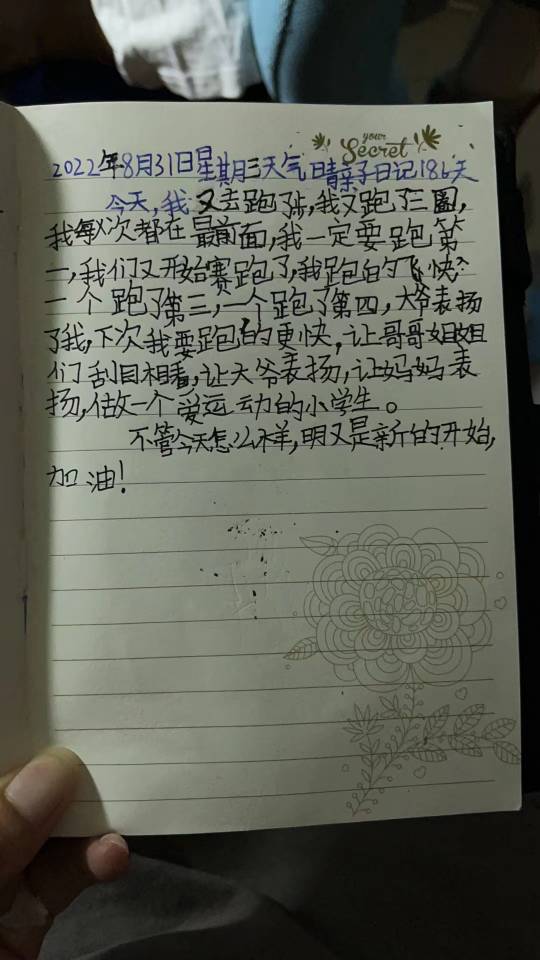 your
Secret
2022年8月31日星期三天气晴亲子日记186天
今天,我又去跑步,我又跑了三圈,
我每次都在最前面,我一定要跑第
一,我们又开始赛跑了,我跑的飞快?
一个跑了第三,一个跑了第四,大爷表扬
了我,下次我要跑的更快,让哥哥姐姐
们刮目相看,让大爷表扬,让妈妈表
扬,做一个爱运动的小学生。
不管今天怎么样,明又是新的开始,
加油!